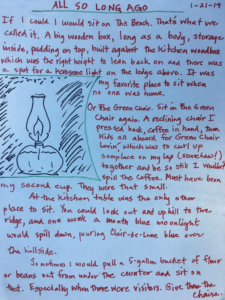 ALL SO LONG AGO
1-21-19
If I could I would sit on The Bench. That's what we
called it. A big wooden box, long as a body, storage
inside, padding on top, built against the kitchen woodbox
which was the right height to lean back on and there was
a spot for a kerosene light on the ledge above. It was
my favorite place to sit when
no one was home.
Or The Green Chair. Sit in The Green
Chair again. A reclining chair I
pressed back, coffee in hand, two
kids all aboard for Green Chair
, which was to curl up
someplace on my lap (somehow!)
together and be still I wouldn't
spill the coffee. Must have been
my second cup. They were that small.
At the kitchen table was the only other
place to sit. You could look out and uphill to the
ridge, and one week a month blue moonlight
would spill down, pouring Clair-de-Lune blue over
the hillside.
Sometimes I would pull a 5-gallon bucket of flour
or beans out from under the counter and sit on
that. Especially when there were visitors. Give them the
chairs.